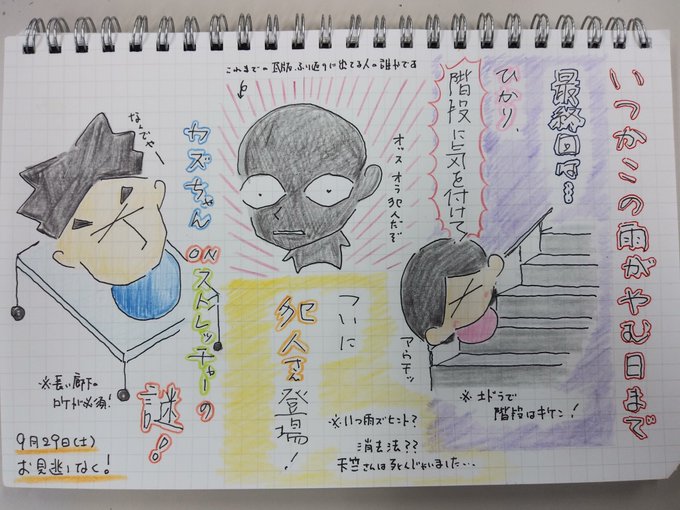 いつかこの雨がやむ日まで
最終回は…
ひかり、
階段に気を付けて
アウチッ
※土ドラで
階段はキケン!
これまでの瓦版ふり返りに出てる人の誰かです
オッス オラ犯人だぞ
ついに
犯人さん登場!
※いつ雨ズヒント?
消去法??
天竺さんは死んじゃいました…
カズちゃん
ONストレッチャーの
謎!
なんでやー
※長い廊下の
ロケが必須!
9月29日(土)
お見逃しなく!